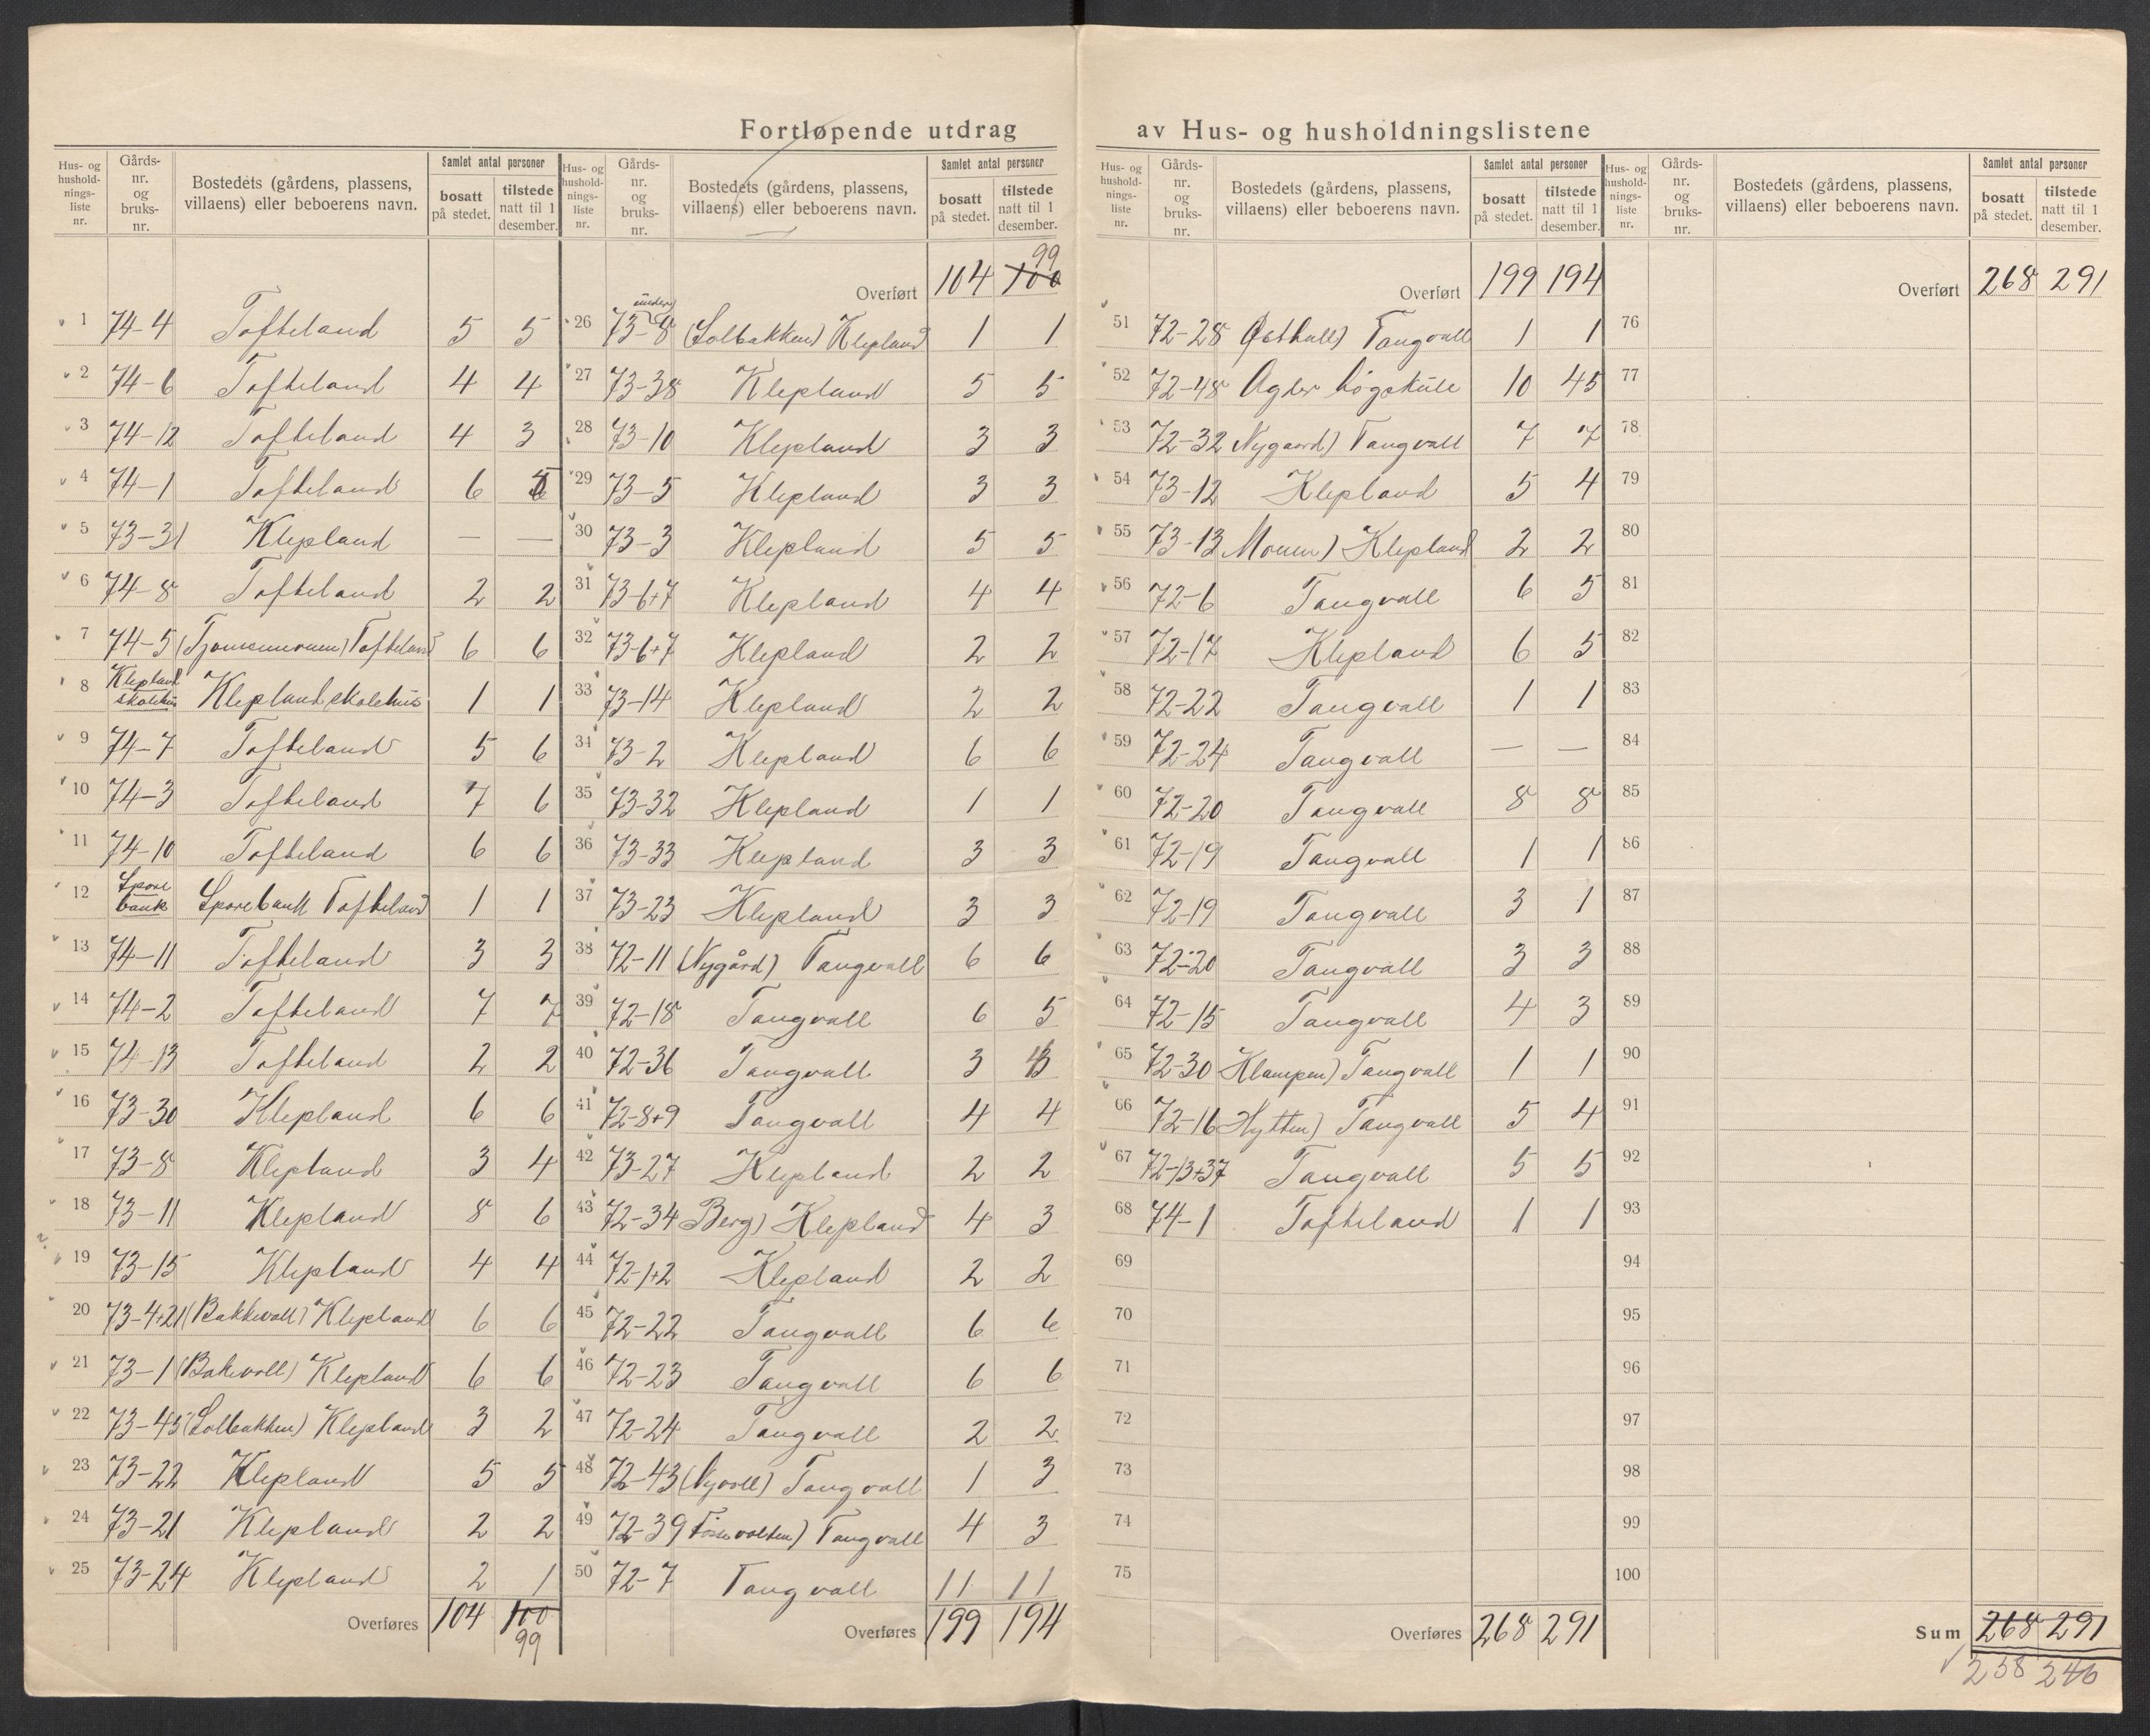 Fortløpende utdrag av Hus- og husholdningslistene
Hus- og husholdnings-liste nr. | Gårds-nr. og bruks-nr. | Bostedets (gårdens, plassens, villaens) eller beboerens navn. | Samlet antal personer | bosatt på stedet. | tilstede natt til 1 desember.
1 74-4 Tofteland 5 5
2 74-6 Tofteland 4 4
3 74-12 Tofteland 4 3
4 74-1 Tofteland 6 5
5 73-31 Klepland — —
6 74-8 Tofteland 2 2
7 74-5 (Tjomsemoen) Tofteland 6 6
8 Klepland skolehus Klepland skolehus 1 1
9 74-7 Tofteland 5 6
10 74-3 Tofteland 7 6
11 74-10 Tofteland 6 6
12 Spare bank Sparebank Tofteland 1 1
13 74-11 Tofteland 3 3
14 74-2 Tofteland 7 7
15 74-13 Tofteland 2 2
16 73-30 Klepland 6 6
17 73-8 Klepland 3 4
18 73-11 Klepland 8 6
19 73-15 Klepland 4 4
20 73-4+21 (Bakkevoll) Klepland 6 6
21 73-1 (Bakevoll) Klepland 6 6
22 73-45 (Solbakken) Klepland 3 2
23 73-22 Klepland 5 5
24 73-21 Klepland 2 2
25 73-24 Klepland 2 1
Overføres 104 100
99
Hus- og husholdnings-liste nr. | Gårds-nr. og bruks-nr. | Bostedets (gårdens, plassens, villaens) eller beboerens navn. | Samlet antal personer | bosatt på stedet. | tilstede natt til 1 desember.
99
Overført 104 100
under
26 73-8 (Solbakken) Klepland 1 1
27 73-38 Klepland 5 5
28 73-10 Klepland 3 3
29 73-5 Klepland 3 3
30 73-3 Klepland 5 5
31 73-6+7 Klepland 4 4
32 73-6+7 Klepland 2 2
33 73-14 Klepland 2 2
34 73-2 Klepland 6 6
35 73-32 Klepland 1 1
36 73-33 Klepland 3 3
37 73-23 Klepland 3 3
38 72-11 (Nygård) Tangvall 6 6
39 72-18 Tangvall 6 5
40 72-36 Tangvall 3 3
41 72-8+9 Tangvall 4 4
42 73-27 Klepland 2 2
43 72-34 Berg) Klepland 4 3
44 72-1+2 Klepland 2 2
45 72-22 Tangvall 6 6
46 72-23 Tangvall 6 6
47 72-24 Tangvall 2 2
48 72-43 (Nyvoll) Tangvall 1 3
49 72-39 Tangvall 4 3
50 72-7 Tangvall 11 11
Overføres 199 194
Hus- og husholdnings-liste nr. | Gårds-nr. og bruks-nr. | Bostedets (gårdens, plassens, villaens) eller beboerens navn. | Samlet antal personer | bosatt på stedet. | tilstede natt til 1 desember.
Overført 199 194
51 72-28 Østhall) Tangvall 1 1
52 72-48 Agder høgskule 10 45
53 72-32 Nygaard) Tangvall 7 7
54 73-12 Klepland 5 4
55 73-13 Mouen) Klepland 2 2
56 72-6 Tangvall 6 5
57 72-17 Klepland 6 5
58 72-22 Tangvall 1 1
59 72-24 Tangvall — —
60 72-20 Tangvall 8 8
61 72-19 Tangvall 1 1
62 72-19 Tangvall 3 1
63 72-20 Tangvall 3 3
64 72-15 Tangvall 4 3
65 72-30 Klampen) Tangvall 1 1
66 72-16 Hytten) Tangvall 5 4
67 72-13+37 Tangvall 5 5
68 74-1 Tofteland 1 1
69
70
71
72
73
74
75
Overføres 268 291
Hus- og husholdnings-liste nr. | Gårds-nr. og bruks-nr. | Bostedets (gårdens, plassens, villaens) eller beboerens navn. | Samlet antal personer | bosatt på stedet. | tilstede natt til 1 desember.
Overført 268 291
76
77
78
79
80
81
82
83
84
85
86
87
88
89
90
91
92
93
94
95
96
97
98
99
100
Sum 268 291
258 246